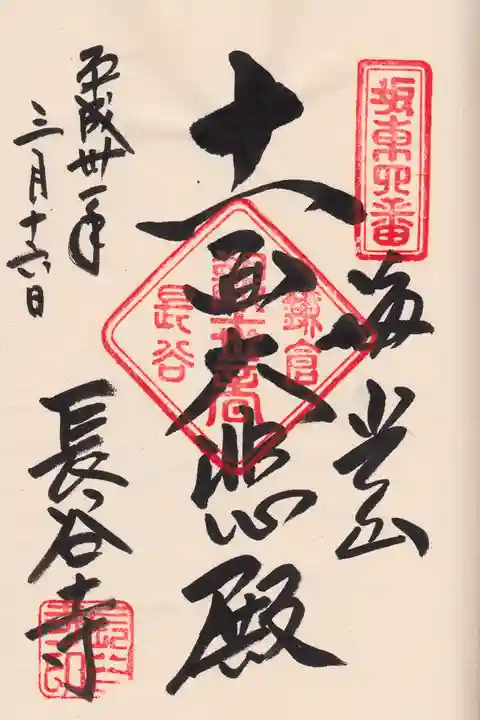 坂東四番
海光山
十一面大悲殿
鎌倉
長谷
平成卅一年
三月十六日
長谷寺
長谷寺印